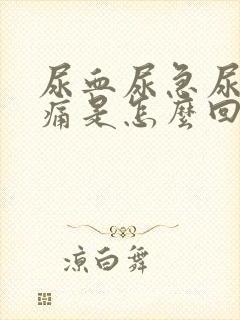 尿血尿急尿
痛是怎麼回
凉白舞